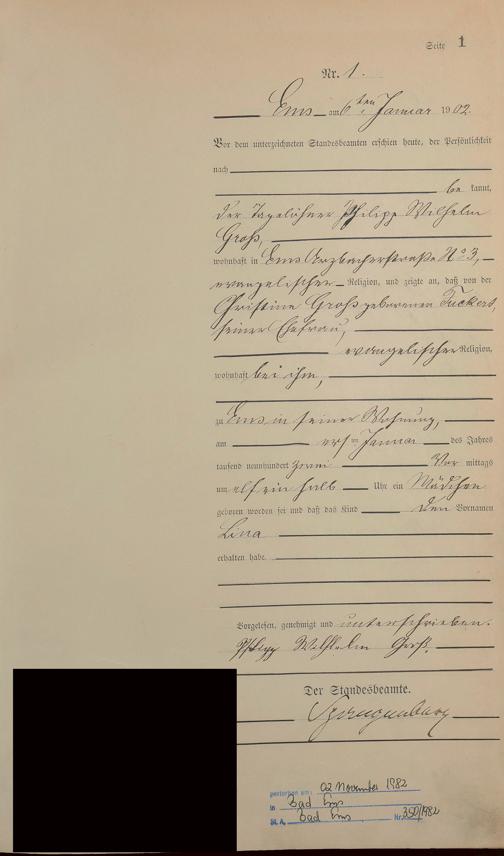 Seite 1
Nr. 1.
Ems am 6ten Januar 1902.
Vor dem unterzeichneten Standesbeamten erschien heute, der Persönlichkeit
nach
be kannt,
der Tagelöhner Philipp Wilhelm
Groß,
wohnhaft in Ems Arzbacherstraße No 3,
evangelischer Religion, und zeigte an, daß von der
Christine Groß geborenen Tuckert,
seiner Ehefrau,
evangelischer Religion,
wohnhaft bei ihm,
zu Ems in seiner Wohnung,
am ersten Januar des Jahres
tausend neunhundert zwei Vor mittags
um elf ein halb Uhr ein Mädchen
geboren worden sei und daß das Kind den Vornamen
Lina
erhalten habe.
Vorgelesen, genehmigt und unterschrieben.
Philipp Wilhelm Groß.
Der Standesbeamte.
gestorben am: 02 November 1982
in Bad Ems
St. A. Bad Ems Nr. 350/1982